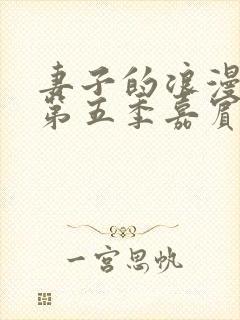 妻子的浪漫
第五季嘉宾
一宫思帆